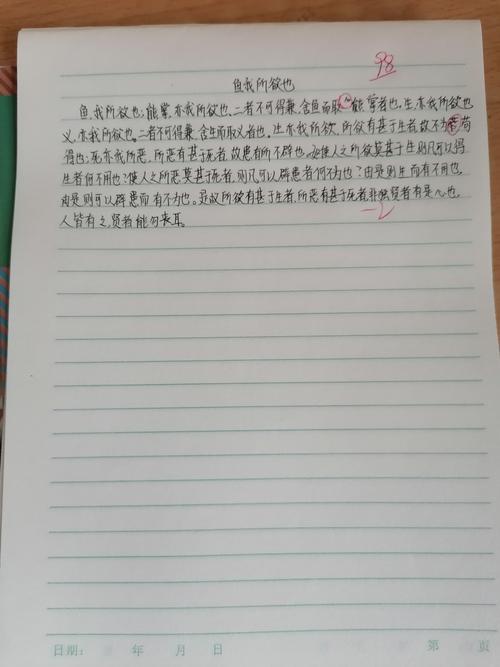 98
鱼我所欲也
鱼,我所欲也;熊掌,亦我所欲也,二者不可得兼,舍鱼而取熊掌者也。生,亦我所欲也
义,亦我所欲也。二者不可得兼,舍生而取义者也。生亦我所欲,所欲有甚于生者,故不为苟
得也;死亦我所恶,所恶有甚于死者,故患有所不辟也。如使人之所欲莫甚于生,则凡可以得
生者何不用也?使人之所恶莫甚于死者,则凡可以辟患者何不为也?由是则生而有不用也,
由是则可以辟患而有不为也。是故所欲有甚于生者,所恶有甚于死者,非独贤者有是心也,
人皆有之,贤者能勿丧耳。
-2
日期: 年 月 日 第 页